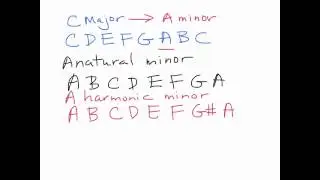 C Major → A minor
C D E F G A B C
A natural minor
A B C D E F G A
A harmonic minor
A B C D E F G# A